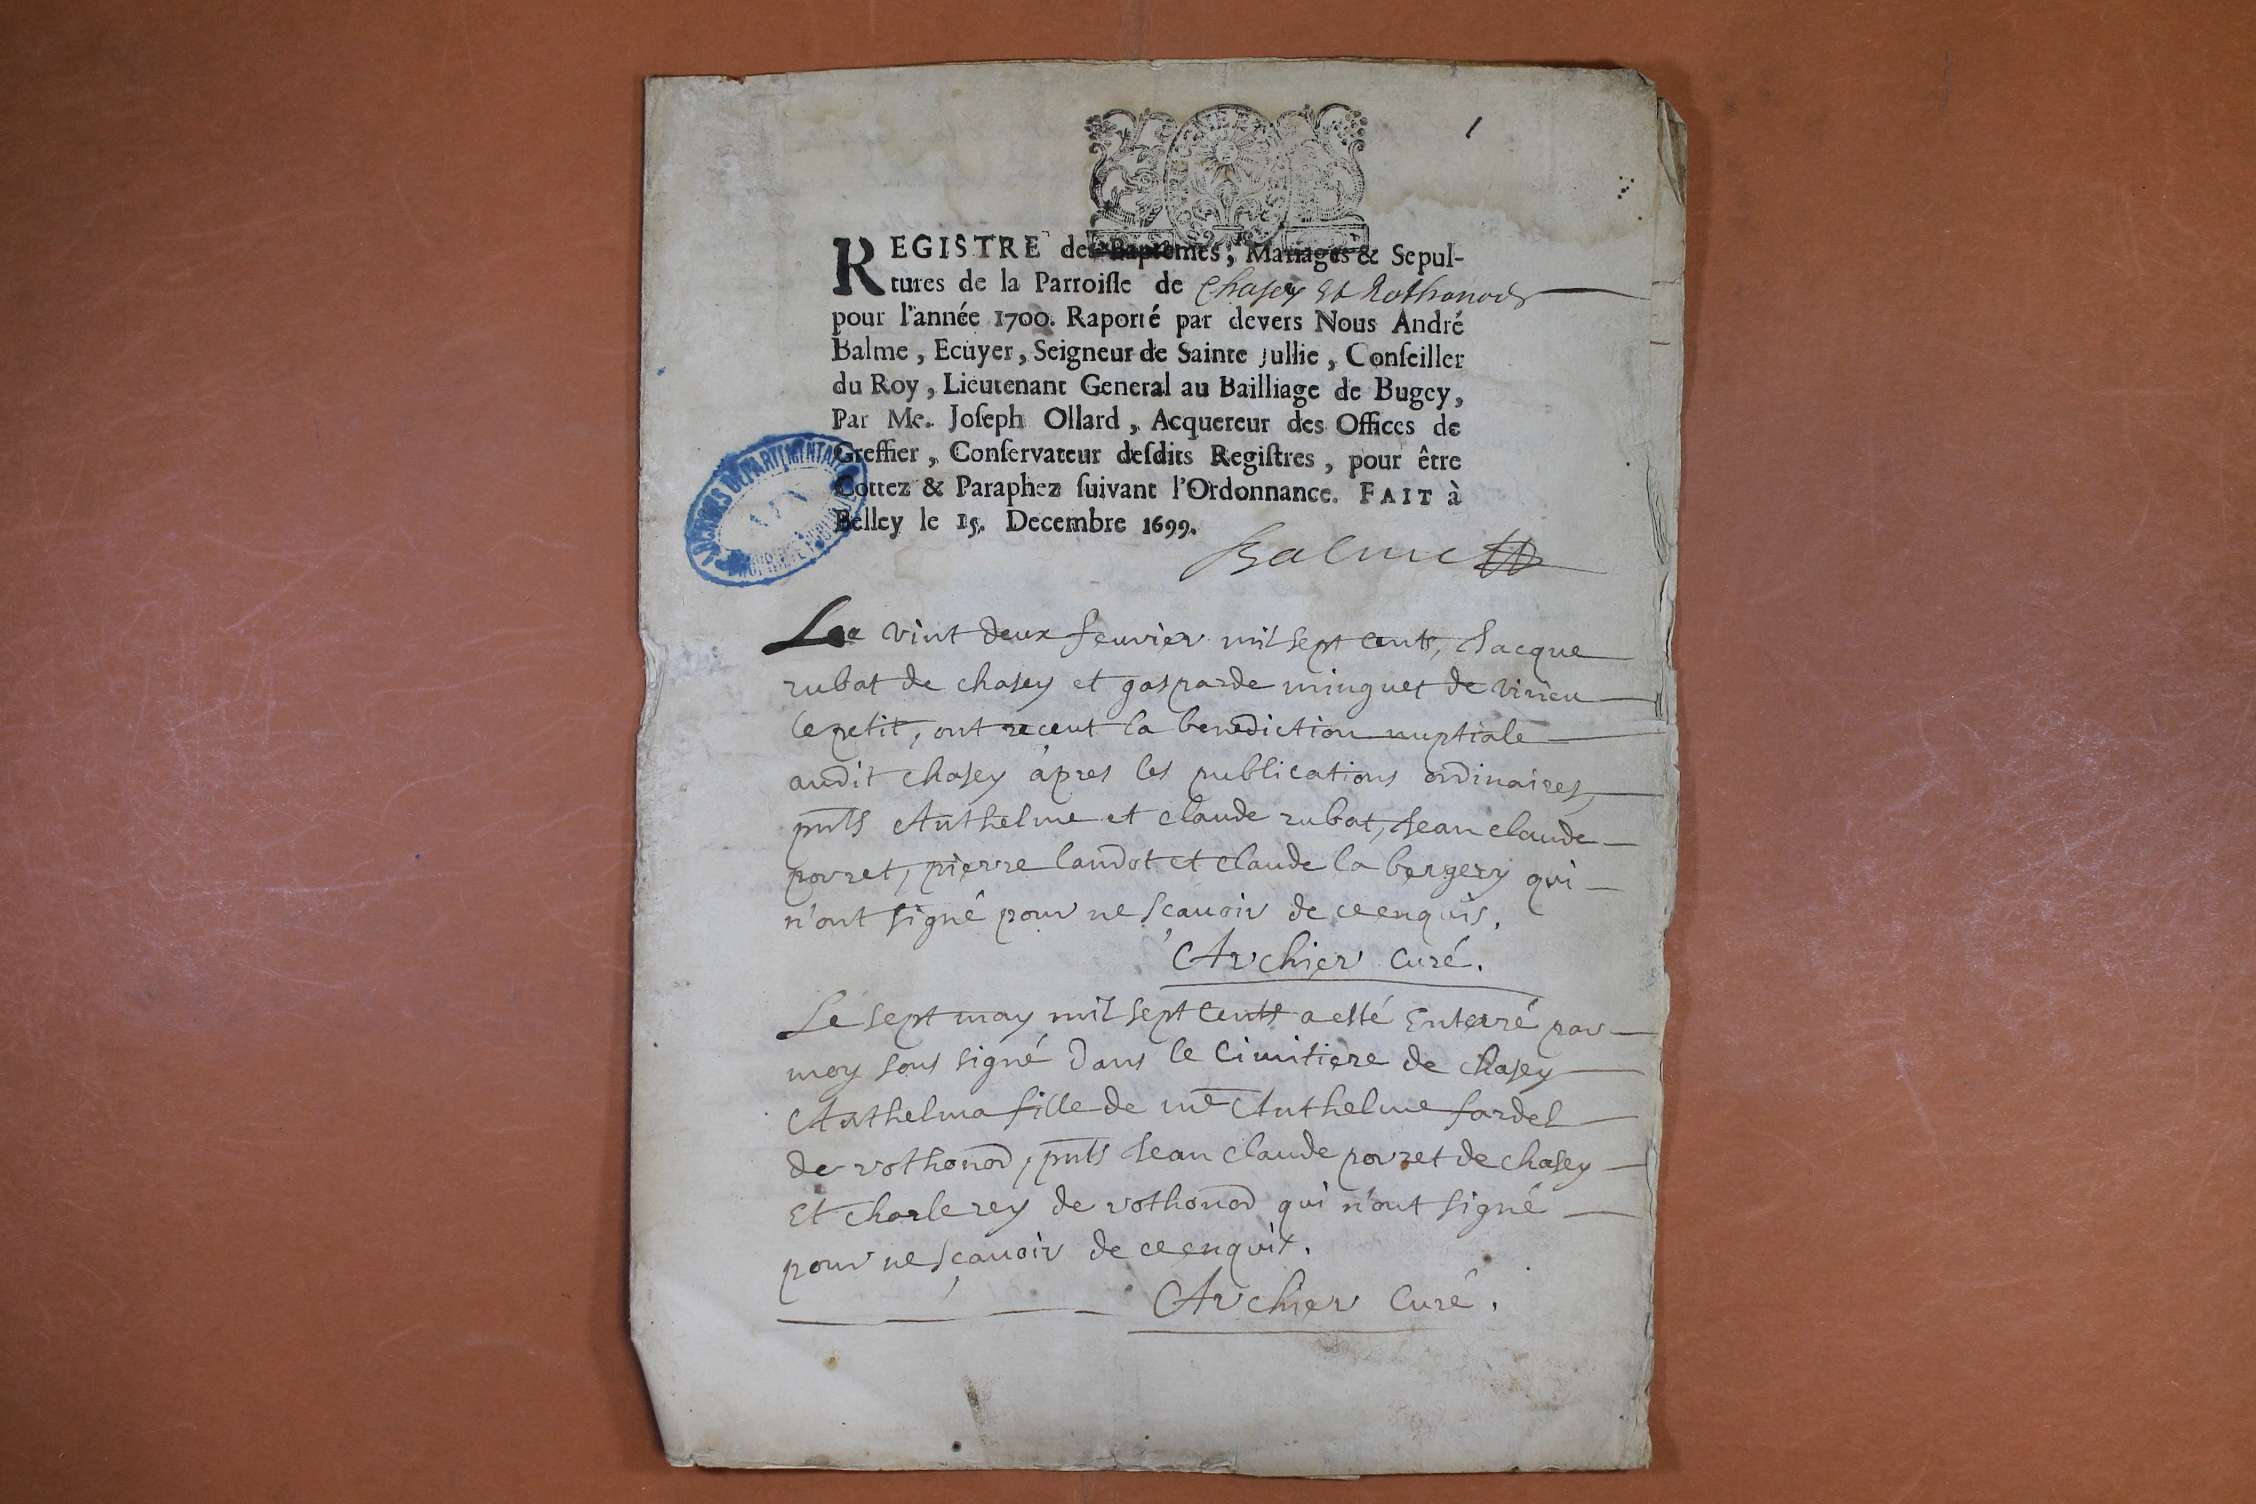 1
REGISTRE des Baptêmes, Mariages & Sepul-
tures de la Parroisse de Chasey Et Rothonod
pour l'année 1700. Raporté par devers Nous André
Balme, Ecuyer, Seigneur de Sainte Jullie, Conseiller
du Roy, Lieutenant General au Bailliage de Bugey,
Par Me. Joseph Ollard, Acquereur des Offices de
Greffier, Conservateur desdits Registres, pour être
Cottez & Paraphez suivant l'Ordonnance. FAIT à
Belley le 15. Decembre 1699.
Balme
ARCHIVES DÉPARTEMENTALES
AIN
Le vint deux feuvier mil sept cents, Jacque
rubat de chasey et gasparde minguet de virieu
le petit, ont receut la benediction nuptiale
audit chasey apres les publications ordinaires,
pnts Anthelme et claude rubat, Jean claude
povret, pierre landot et claude la bergery qui
n'ont signé pour ne scauoir de ce enquis.
Archier Curé.
Le sept may mil sept cents a esté Enterré par
moy sous signé dans le Cimitiere de chasey
Anthelma fille de me Anthelme fardel
de rothonod, pnts Jean claude povret de chasey
Et charle rey de rothonod qui n'ont signé
pour ne sçauoir de ce enquit.
Archier Curé.